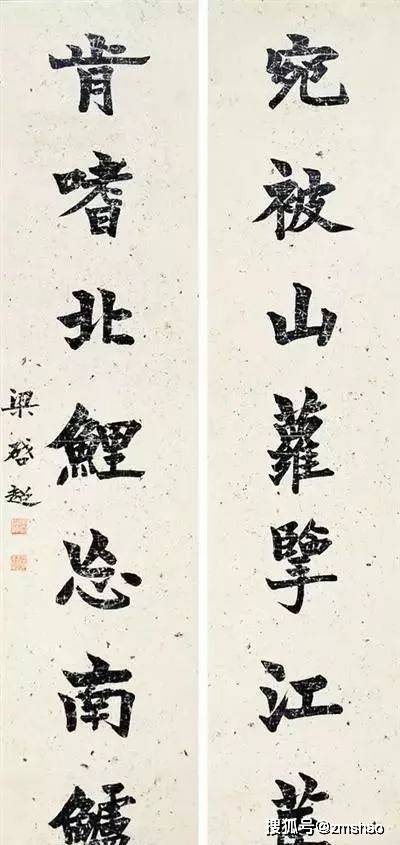 宛被山蘿擥江
肯嗜北鯉忘南鱸
梁啓超
搜狐号@zmshao